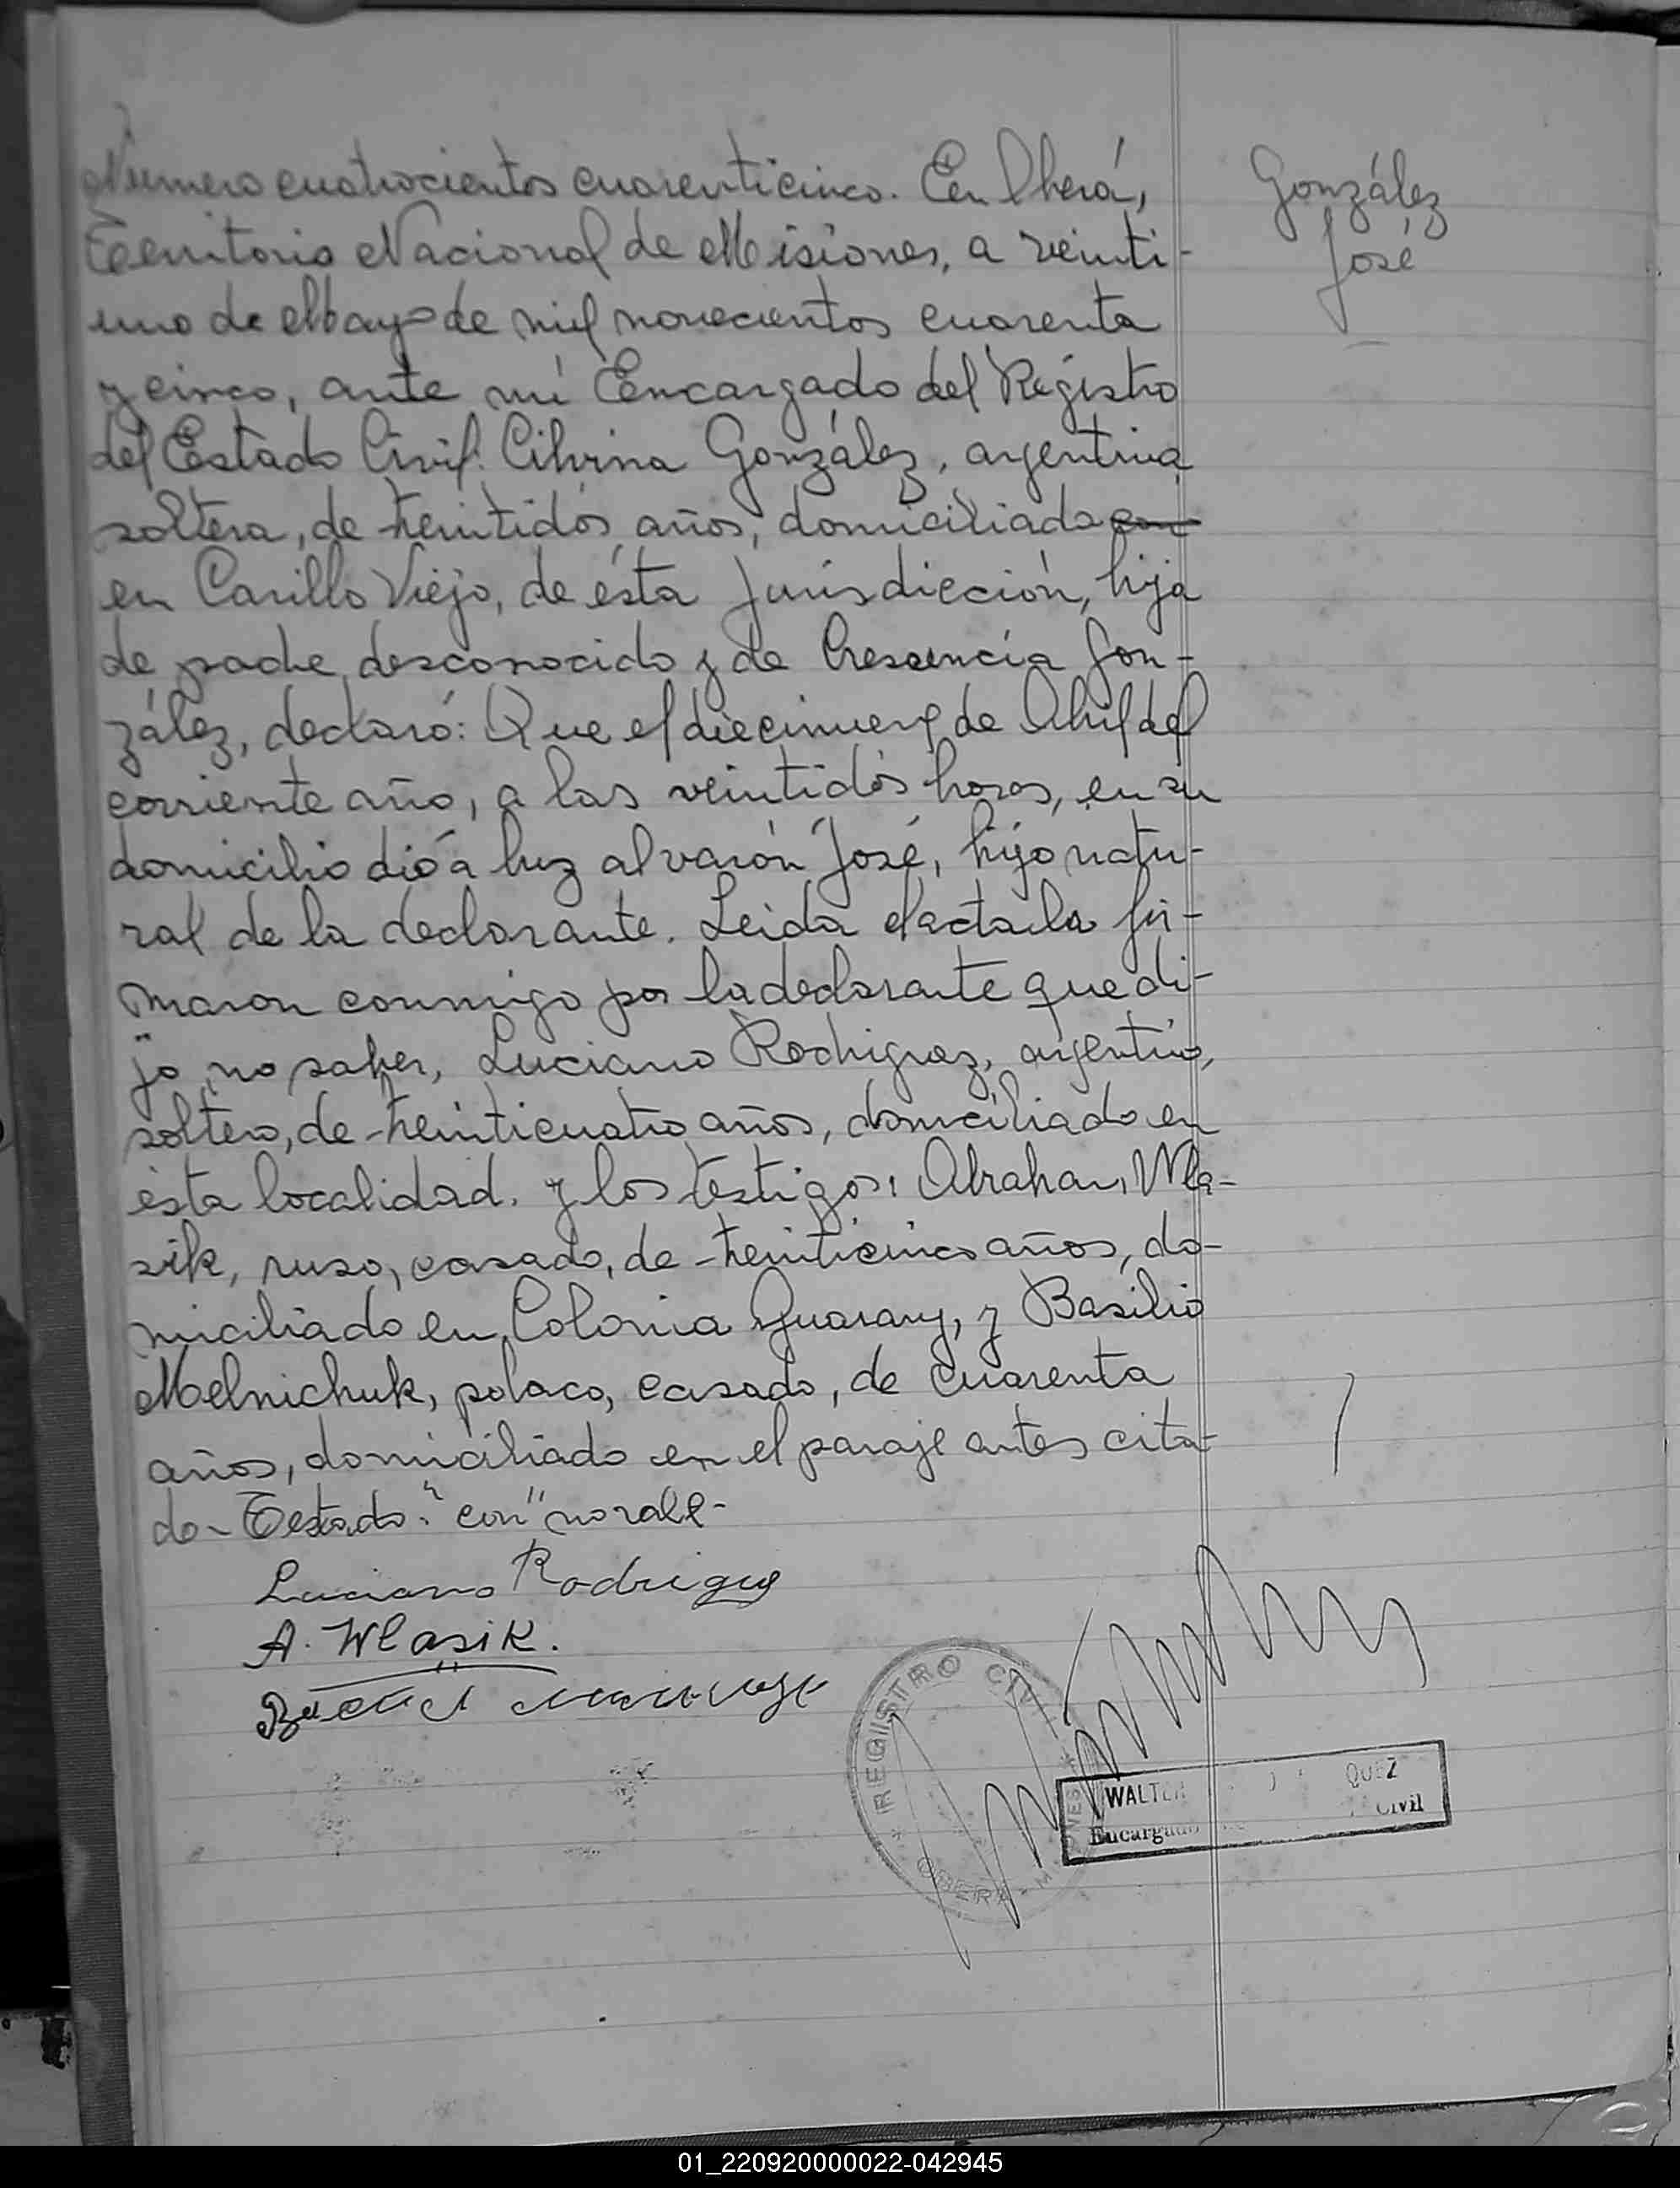 Número cuatrocientos cuarenticinco. En Oberá,
Territorio Nacional de Misiones, a veinti-
uno de Mayo de mil novecientos cuarenta
y cinco, ante mí Encargado del Registro
del Estado Civil: Cilvina González, argentina
soltera, de treintidós años, domiciliada con
en Carillo Viejo, de ésta Jurisdicción, hija
de padre desconocido y de Cresencia Gon-
zález, declaró: Que el diecinueve de Abril del
corriente año, a las veintidós horas, en su
domicilio dió a luz al varón José, hijo natu-
ral de la declarante. Leida el acta la fir-
maron conmigo por la declarante que di-
jo no saber, Luciano Rodriguez, argentino,
soltero, de treinticuatro años, domiciliado en
ésta localidad. y los testigos: Abraham Wla-
sik, ruso, casado, de treinticinco años, do-
miciliado en Colonia Guarany, y Basilio
Melnichuk, polaco, casado, de cuarenta
años, domiciliado en el paraje antes cita-
do- Testado: "con" no vale-
González
José
Luciano Rodriguez
A. Wlasik.
REGISTRO CIVIL
OBERA - MISIONES
WALTER
QUEZ
Encargado
Civil
01_220920000022-042945